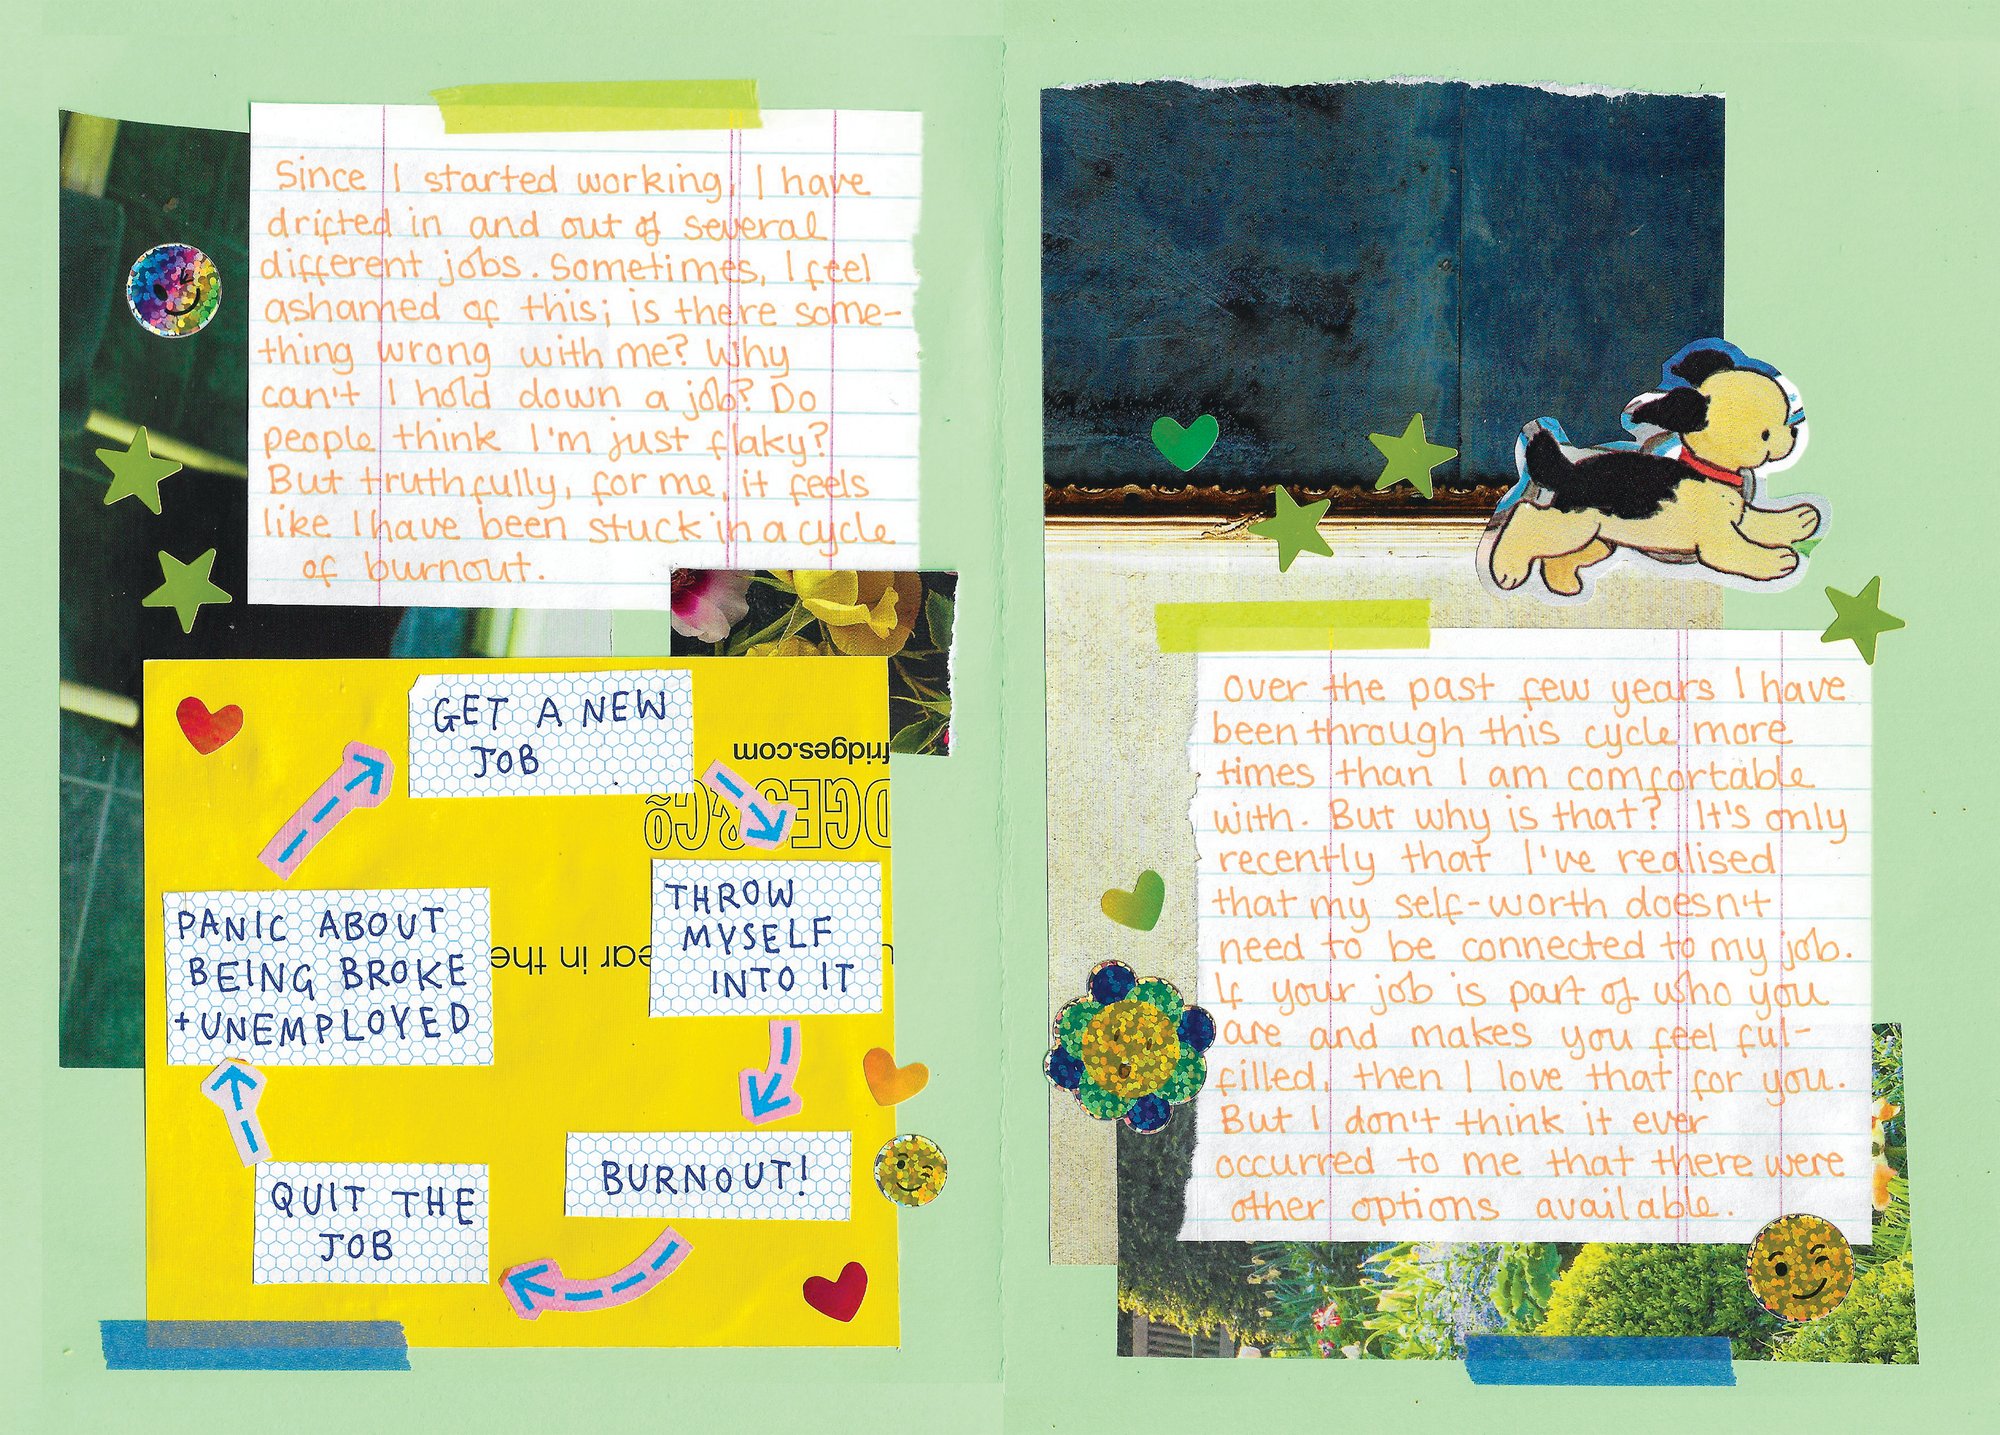 Since I started working, I have
drifted in and out of several
different jobs. Sometimes, I feel
ashamed of this; is there some-
thing wrong with me? Why
can't I hold down a job? Do
people think I'm just flaky?
But truthfully, for me, it feels
like I have been stuck in a cycle
of burnout.
GET A NEW
JOB
fridges.com
DGES&Co
THROW
MYSELF
INTO IT
ear in the
BURNOUT!
QUIT THE
JOB
PANIC ABOUT
BEING BROKE
+UNEMPLOYED
Over the past few years I have
been through this cycle more
times than I am comfortable
with. But why is that? It's only
recently that I've realised
that my self-worth doesn't
need to be connected to my job.
If your job is part of who you
are and makes you feel ful-
filled, then I love that for you.
But I don't think it ever
occurred to me that there were
other options available.